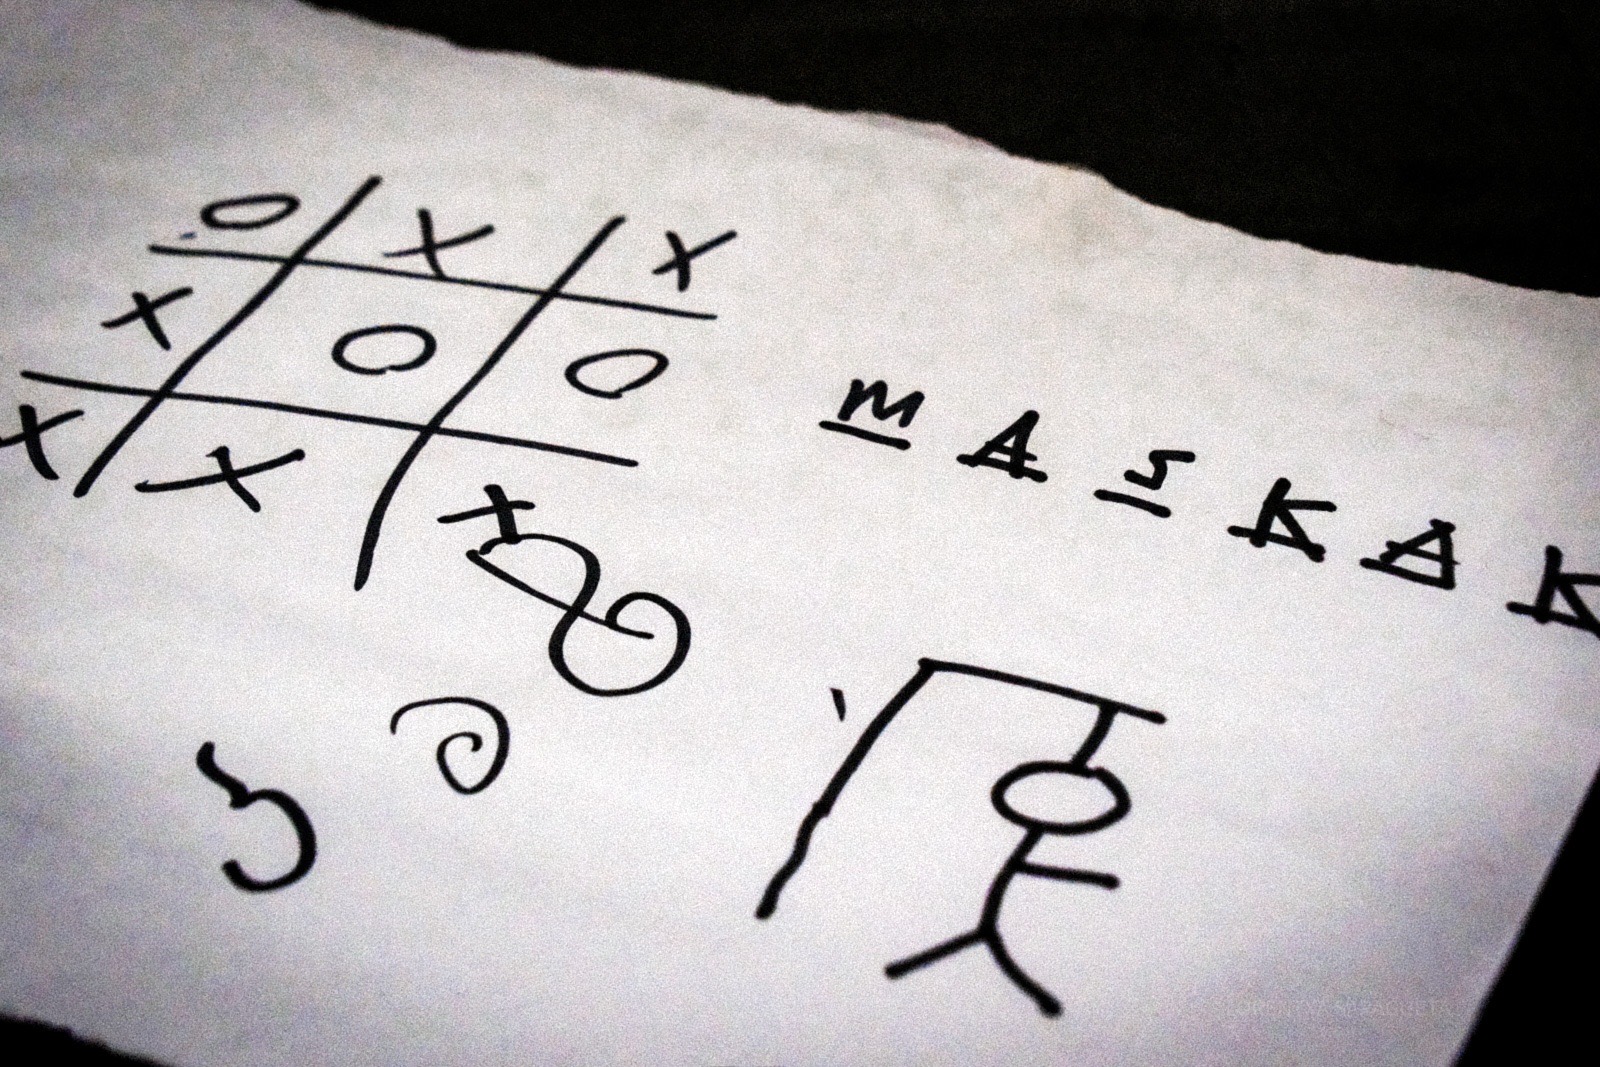 O X X
X O O
X X X
m A S K A K